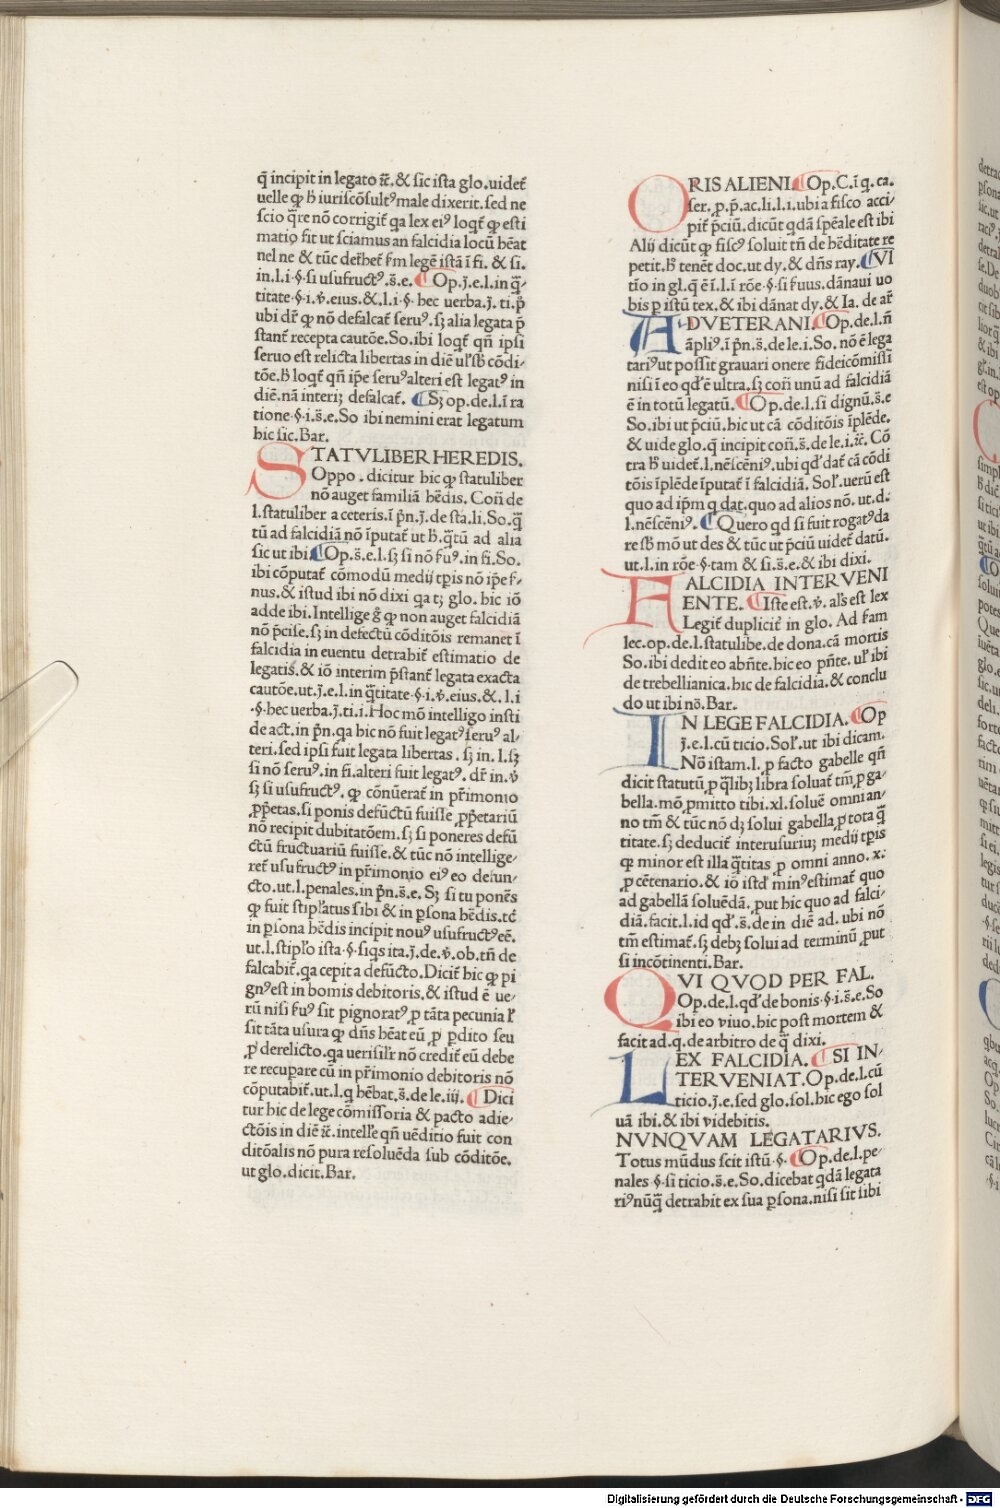 q̄ incipit in legato ⁊c̄. & sic ista glo. uidet̄
uelle qꝙ h̄ iuriscōsultꝰ male dixerit. sed ne
scio q̄re nō corrigit̄ qa lex eiꝰ loqt̄ ꝙ esti
matio fit ut sciamus an falcidia locū hēat
nel ne & tūc det̄het̄ s̄m legē istā ī fi. & si.
in. l. i. §. si usufructꝰ. s̄. e. ¶ Op. j. e. l. in q̄
titate. §. i. v̄. eius. &. l. i. §. hec uerba. j. ti. p̄
ubi dr̄ ꝙ nō defalcat̄ seruꝰ. sꝫ alia legata p̄
stant̄ recepta cautōe. So. ibi loqt̄ qn̄ ipsi
seruo est relicta libertas in diē ul̄ sb̄ cōdi-
tōe. h̄ loqt̄ qn̄ ip̄e seruꝰ alteri est legatꝰ in
diē. nā interiꝫ defalcat̄. ¶ Sꝫ op. de. l. ī ra
tione. §. i. s̄. e. So ibi nemini erat legatum
hic sic. Bar.
STATVLIBER HEREDIS.
Oppo. dicitur hic ꝙ statuliber
nō auget familiā hēdis. Con̄ de
l. statuliber a ceteris. ī p̄n. j. de sta. li. So. q̄
tū ad falcidiā nō īputat̄ ut h̄. q̄tū ad alia
sic ut ibi ¶ Op. s̄. e. l. sꝫ si nō s̄uꝰ. in fi. So.
ibi cōputat̄ cōmodū medij tp̄is nō ip̄e s̄-
nus. & istud ibi nō dixi qa tꝫ glo. hic iō
adde ibi. Intellige ḡ ꝙ non auget falcidiā
nō p̄cise. sꝫ in defectū cōditōis remanet ī
falcidia in euentu detrahit̄ estimatio de
legatis. & iō interim p̄stant̄ legata exacta
cautōe. ut. j. e. l. in q̄titate. §. i. v̄. eius. &. l. i
. §. hec uerba. j. ti. i. Hoc mō intelligo insti
de act. in p̄n. qa hic nō fuit legatꝰ seruꝰ al-
teri. sed ipsi fuit legata libertas. sꝫ in. l. sꝫ
si nō seruꝰ. in fi. alteri fuit legatꝰ. dr̄ in. v̄
sꝫ si usufructꝰ. ꝙ cōnūerat̄ in pr̄imonio
ꝓp̄etas. si ponis defūctū fuisse ꝓp̄etariū
nō recipit dubitatōem. sꝫ si poneres defū
ctū fructuariū fuisse. & tūc nō intellige-
ret̄ usufructꝰ in pr̄imonio eiꝰ eo defun-
cto. ut. l. penales. in p̄n. s̄. e. Sꝫ si tu ponēs
ꝙ fuit stipl̄atus sibi & in ꝑsona hēdis. tc̄
in ꝑsona hēdis incipit nouꝰ usufructꝰ eē.
ut. l. stipl̄o ista. §. siqs ita. j. de. v̄. ob. tn̄ de
falcabit̄. qa cepit a defūcto. Dicit̄ hic ꝙ pi
gnꝰ est in bomis debitoris. & istud ē ue-
rū nisi s̄uꝰ sit pignoratꝰ ꝓ tāta pecunia l̄
sit tāta usura ꝙ dn̄s hēat eū ꝓ ꝑdito seu
ꝓ derelicto. qa uerisil̄r nō credit̄ eū debe
re recuꝑare cū in pr̄imonio debitoris nō
cōputabit̄. ut. l. q hēbat. s̄. de le. iij. ¶ Dici
tur hic de lege cōmissoria & pacto adie-
ctōis in diē ⁊c̄. intell̄e qn̄ uēditio fuit con
ditōalis nō pura resoluēda sub cōditōe.
ut glo. dicit. Bar.
ORIS ALIENI. ¶ Op. C. ī q. ca.
ser. ꝓ. p̄. ac. li. l. i. ubi a fisco acci-
pit̄ p̄ciū. dicūt qdā sp̄eale est ibi
Alij dicūt ꝙ fiscꝰ soluit tn̄ de hēditate re
petit. h̄ tenēt doc. ut dy. & dn̄s ray. ¶ VI
tīo in gl. q̄ ē ī. l. ī rōe. §. si s̄uus. dānaui uo
bis ꝑ istū tex. & ibi dānat dy. & Ia. de ar̄
ADVETERANI. ¶ Op. de. l. n̄
āpliꝰ. ī p̄n. s̄. de le. i. So. nō ē lega
tariꝰ ut possit grauari onere fideicōmissī
nisi ī eo qd̄ ē ultra. sꝫ con̄ unū ad falcidiā
ē in totū legatū. ¶ Op. de. l. si dignū. s̄. e
So. ibi ut p̄ciū. hic ut cā cōditōis īplēde.
& uide glo. q̄ incipit con̄. s̄. de le. i. ⁊c̄. Cō
tra h̄ uidet̄. l. nēscēniꝰ. ubi qd̄ dat̄ cā cōdi
tōis īplēde īputat̄ ī falcidiā. Sol̄. uerū est
quo ad ip̄m q dat. quo ad alios nō. ut. d.
l. nēscēniꝰ. ¶ Quero qd si fuit rogatꝰ da
re sb̄ mō ut des & tūc ut p̄ciū uidet̄ datū.
ut. l. in rōe. §. tam & si. s̄. e. & ibi dixi.
FALCIDIA INTERVENI
ENTE. ¶ Iste est. v̄. al̄s est lex
Legit̄ duplicit̄ in glo. Ad fam
lec. op. de. l. statulibe. de dona. cā mortis
So. ibi dedit eo abn̄te. hic eo pn̄te. ul̄ ibi
de trebellianica. hic de falcidia. & conclu
do ut ibi nō. Bar.
IN LEGE FALCIDIA. ¶ Op
j. e. l. cū ticio. Sol̄. ut ibi dicam.
Nō istam. l. ꝓ facto gabelle qn̄
dicit statutū ꝓ qlibꝫ libra soluat̄ tm̄ ꝓ ga-
bella. mō ꝓmitto tibi. xl. soluē omni an-
no tm̄ & tūc nō dꝫ solui gabella ꝓ tota q̄
titate. sꝫ deducit̄ interusuriuꝫ medij tp̄is
ꝙ minor est illa q̄titas ꝓ omni anno. x.
ꝓ cētenario. & iō istd̄ minꝰ estimat̄ quo
ad gabellā soluēdā. put hic quo ad falci-
diā. facit. l. id qd̄. s̄. de in diē ad. ubi nō
tm̄ estimat̄. sꝫ debꝫ solui ad terminū ꝓut
si incōtinenti. Bar.
QVI QVOD PER FAL.
Op. de. l. qd̄ de bonis. §. i. s̄. e. So
ibi eo viuo. hic post mortem &
facit ad. q. de arbitro de q̄ dixi.
LEX FALCIDIA. ¶ SI IN-
TERVENIAT. Op. de. l. cū
ticio. j. e. sed glo. sol. hic ego sol
uā ibi. & ibi videbitis.
NVNQVAM LEGATARIVS.
Totus mūdus scit istū. §. ¶ Op. de. l. pe-
nales. §. si ticio. s̄. e. So. dicebat qdā legata
riꝰ nūq̄ detrahit ex sua ꝑsona. nisi sit sibi
Digitalisierung gefördert durch die Deutsche Forschungsgemeinschaft - DFG